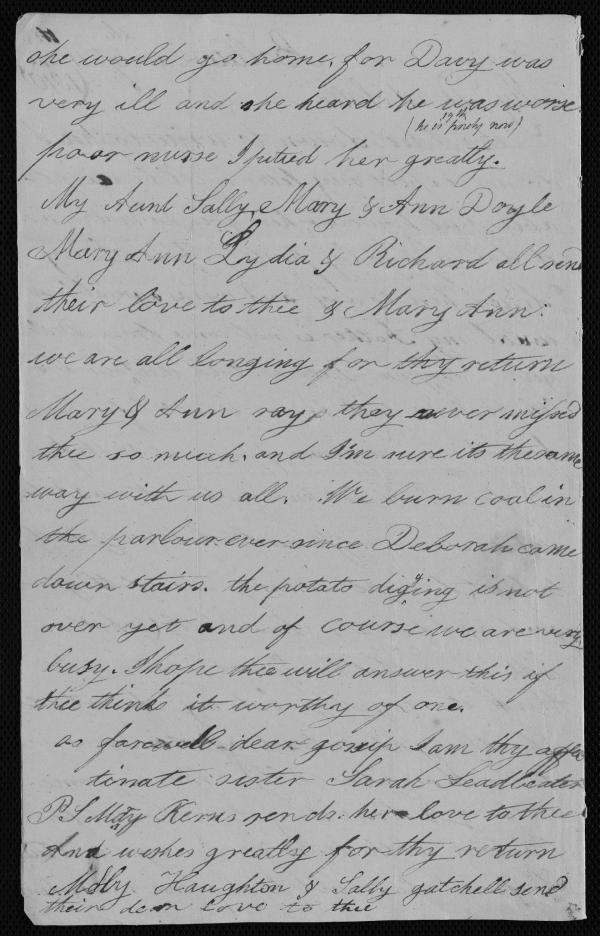 she would go home, for Davy was
very ill and she heard he was worse
(he is finely now)
poor nurse I pitied her greatly.
My Aunt Sally, Mary & Ann Doyle
Mary Ann Lydia & Richard all send
their love to thee & Mary Ann.
we are all longing for thy return
Mary & Ann say, they never missed
thee so much. and I'm sure its the same
way with us all. We burn coal in
the parlour ever since Deborah came
down stairs. the potato diging is not
over yet and of course we are very
busy. I hope thee will answer this if
thee thinks it worthy of one.
so farewell dear gossip I am thy affec
tionate sister Sarah Leadbeater
P S Kerns sends her love to thee
And wishes greatly for thy return
Haughton & Sally gatchell send
their dear love to thee